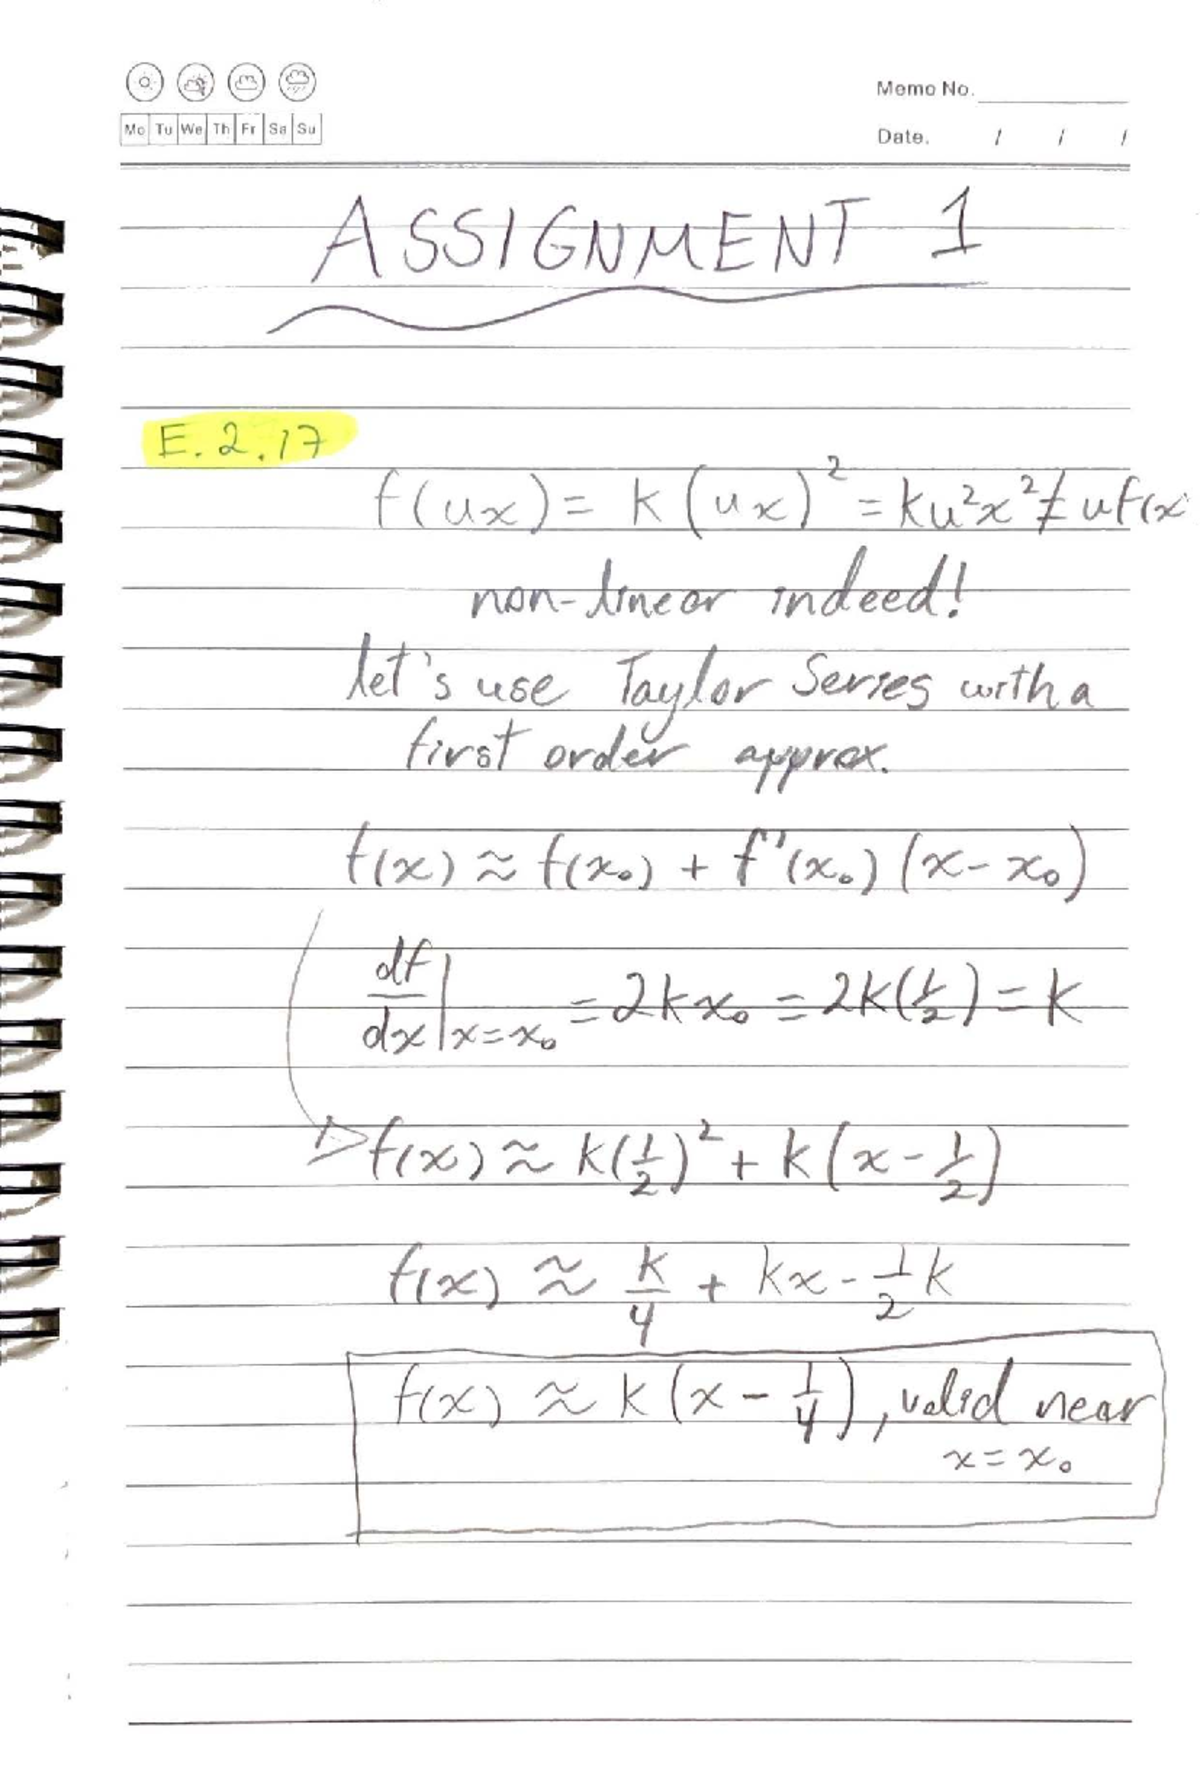 Memo No.
Mo Tu We Th Fr Sa Su
Date. / / /
ASSIGNMENT 1
E.2.17
f(ux) = K(ux)² = Ku²x² ≠ uf(x
non-linear indeed!
let's use Taylor Series with a
first order approx.
f(x) ≈ f(x₀) + f'(x₀)(x-x₀)
df/dx|x=x₀ = 2kx₀ = 2K(1/2) = K
f(x) ≈ K(1/2)² + K(x-1/2)
f(x) ≈ K/4 + Kx - 1/2 K
f(x) ≈ K(x - 1/4), valid near
x = x₀